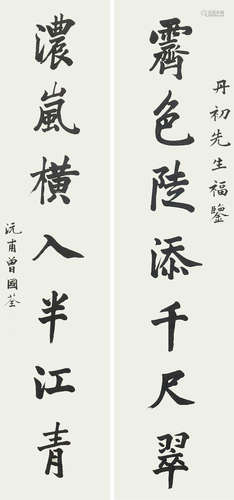 丹初先生福鑒
霽色陡添千尺翠
濃嵐橫入半江青
沅甫曾國荃